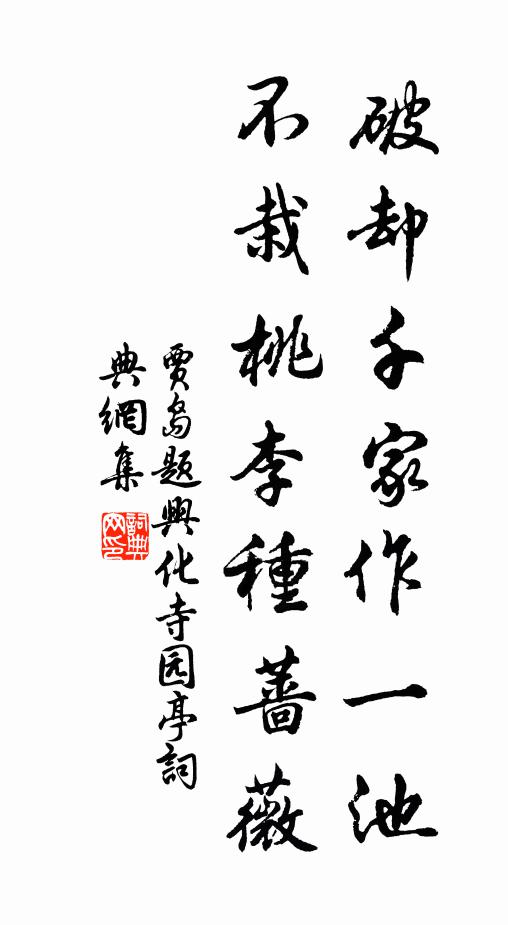 破却千家作一池
不栽桃李種薔薇
賈島題興化寺园亭詞
典網集
詞典
网印